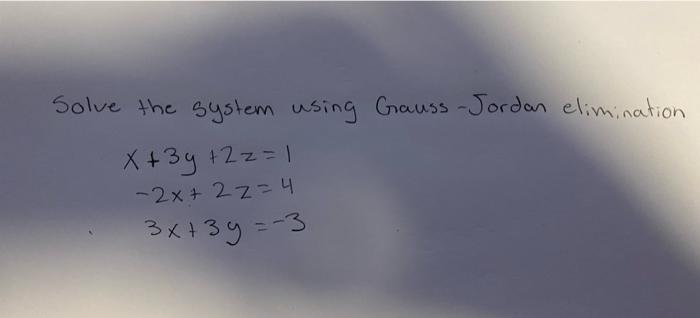 Solve the system using Gauss-Jordan elimination
x+3y+2z=1
-2x+2z=4
3x+3y=-3